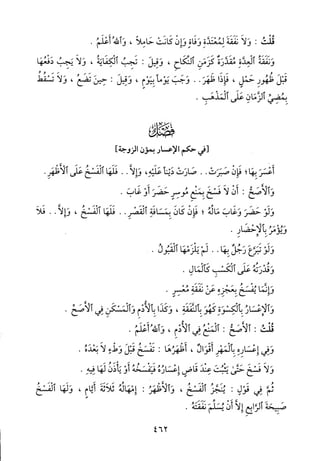 قُلْتُ : وَلاَ نَفَقَةَ لِمُعْتَدَّةِ وَفَاةٍ وَإِنْ كَانَتْ حَامِلاً ، وَاللهُ أَعْلَمُ .
وَنَفَقَةُ الْعِدَّةِ مُقَدَّرَةٌ كَزَمَنِ النِّكَاحِ ، وَقِيلَ : تَجِبُ الْكِفَايَةُ ، وَلاَ يَجِبُ دَفْعُهَا
قَبْلَ ظُهُورِ حَمْلٍ ، فَإِذَا ظَهَرَ.. وَجَبَ يَوْماً بِيَوْمٍ ، وَقِيلَ : حِينَ تَضَعُ ، وَلاَ تَسْقُطُ
بِمُضِيِّ الزَّمَانِ عَلَى الْمَذْهَبِ .
فَصْلٌ
[في حكم الإعسار بمؤن الزوجة]
أَعْسَرَ بِهَا ؛ فَإِنْ صَبَرَتْ.. صَارَتْ دَيْناً عَلَيْهِ ، وَإِلاَّ.. فَلَهَا الْفَسْخُ عَلَى الأَظْهَرِ .
وَالأَصَحُّ : أَنْ لاَ فَسْخَ بِمَنْعِ مُوسِرٍ حَضَرَ أَوْ غَابَ .
وَلَوْ حَضَرَ وَغَابَ مَالُهُ ؛ فَإِنْ كَانَ بِمَسَافَةِ الْقَصْرِ.. فَلَهَا الْفَسْخُ ، وَإِلاَّ.. فَلاَ
وَيُؤْمَرُ بِالإِحْضَارِ .
وَلَوْ تَبَرَّعَ رَجُلٌ بِهَا.. لَمْ يَلْزَمْهَا الْقَبُولُ .
وَقُدْرَتُهُ عَلَى الْكَسْبِ كَالْمَالِ .
وَإِنَّمَا يُفْسَخُ بِعَجْزِهِ عَنْ نَفَقَةِ مُعْسِرٍ .
وَالإِعْسَارُ بِالْكِسْوَةِ كَهُوَ بِالنَّفَقَةِ ، وَكَذَا بِالأُدْمِ وَالْمَسْكَنِ فِي الأَصَحِّ .
قُلْتُ : الأَصَحُّ : الْمَنْعُ فِي الأُدْمِ ، وَاللهُ أَعْلَمُ .
وَفِي إِعْسَارِهِ بِالْمَهْرِ أَقْوَالٌ ، أَظْهَرُهَا : تَفْسَخُ قَبْلَ وَطْءٍ لاَ بَعْدَهُ .
وَلاَ فَسْخَ حَتَّىٰ يَثْبُتَ عِنْدَ قَاضٍ إِعْسَارُهُ فَيَفْسَخُهُ أَوْ يَأْذَنُ لَهَا فِيهِ .
ثُمَّ فِي قَوْلٍ : يُنَجَّزُ الْفَسْخُ ، وَالأَظْهَرُ : إِمْهَالُهُ ثَلاَثَةَ أَيَّامٍ ، وَلَهَا الْفَسْخُ
صَبِيحَةَ الرَّابِعِ إِلاَّ أَنْ يُسَلِّمَ نَفَقَتَهُ .
٤٦٢